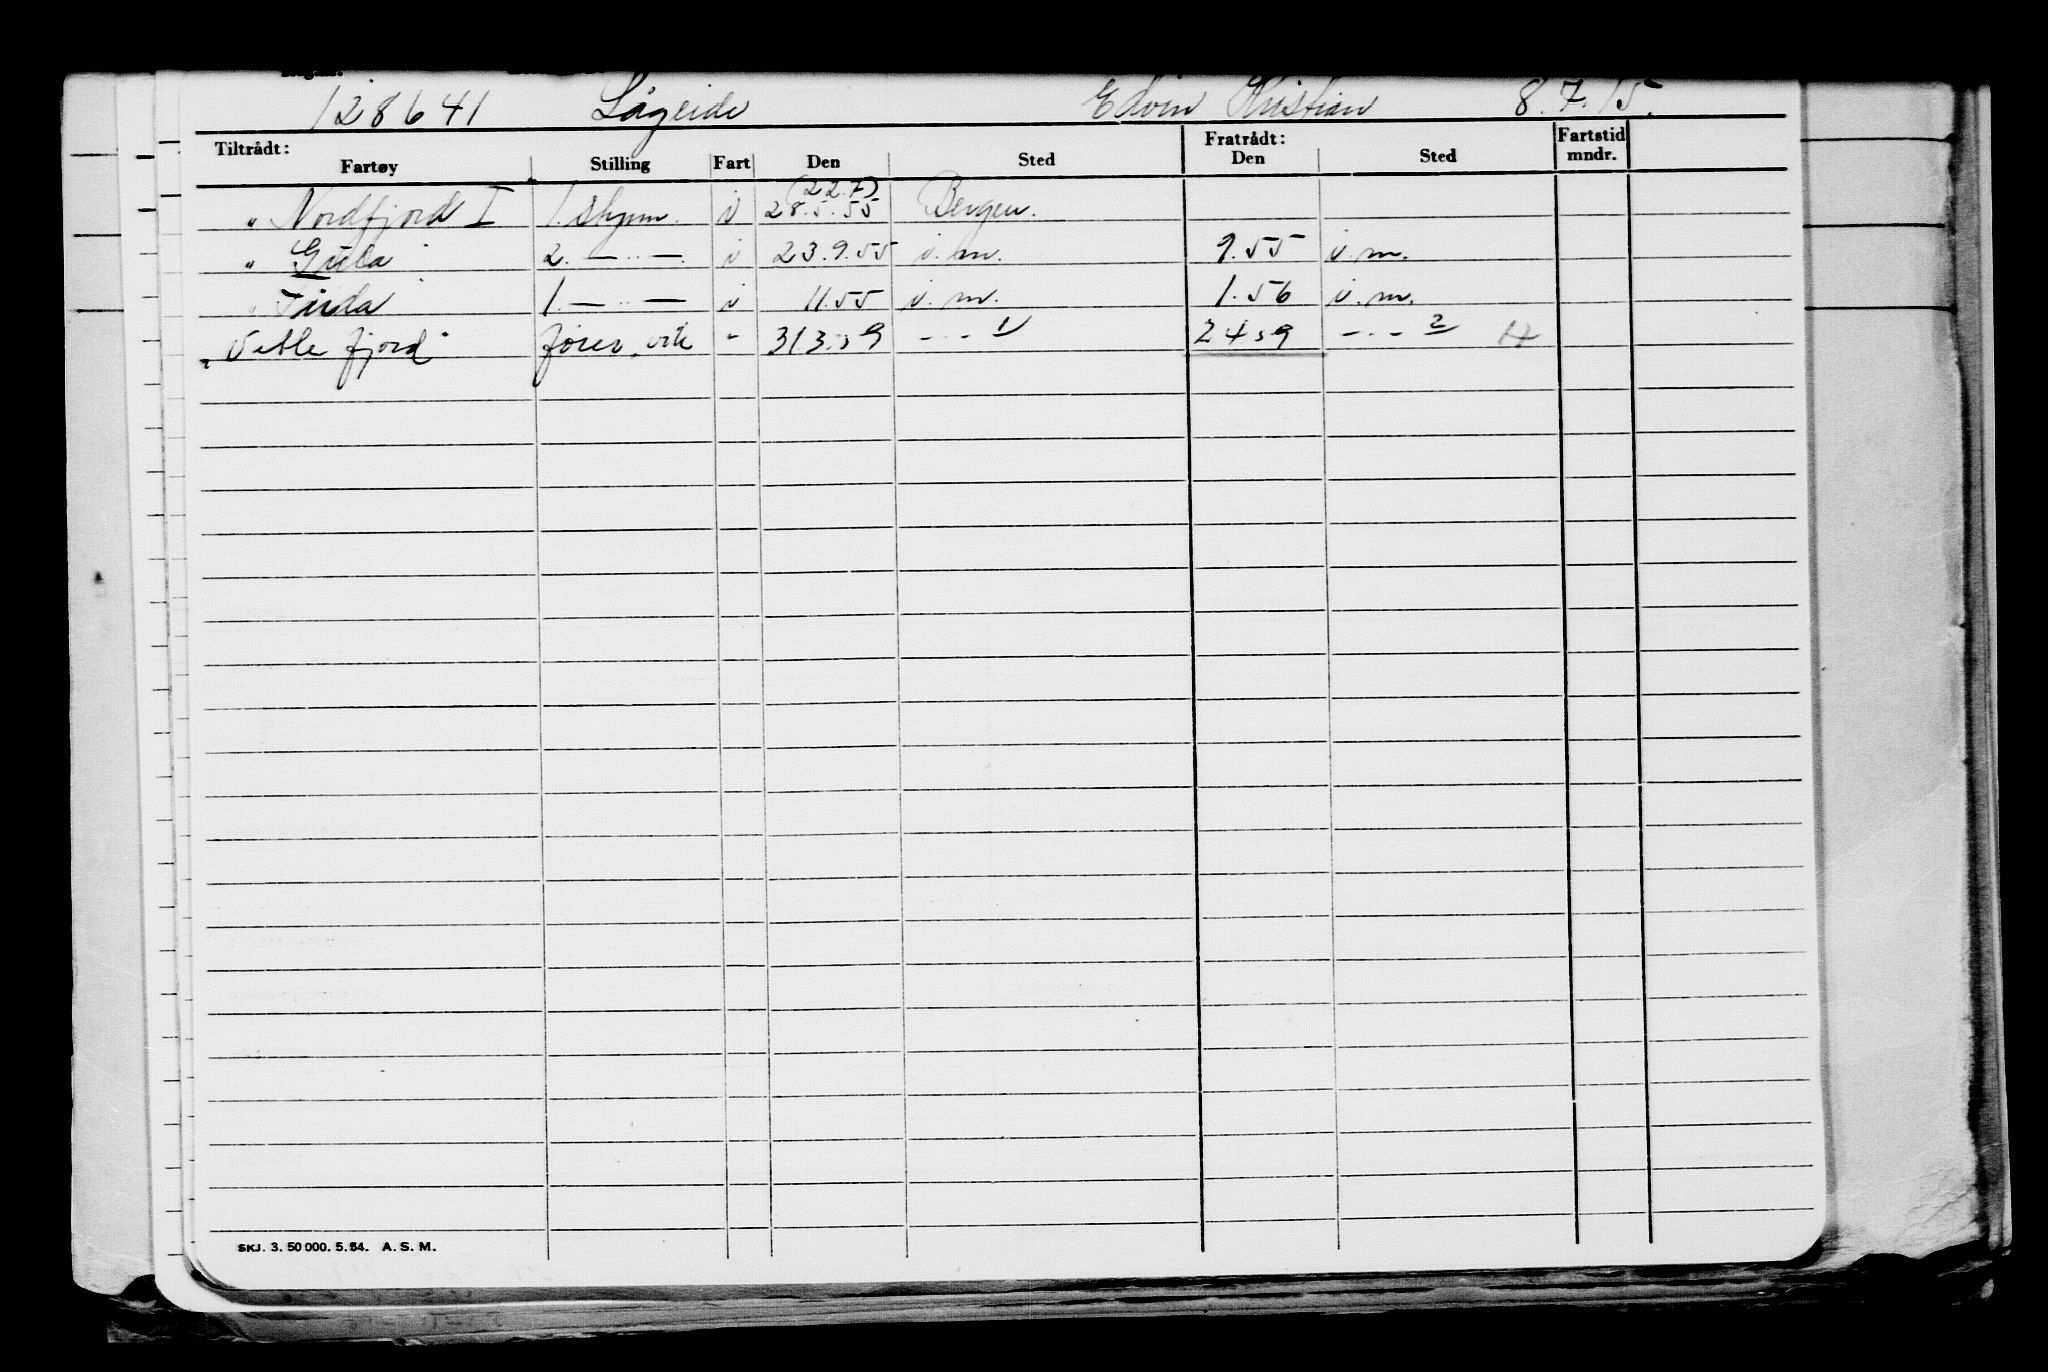 128641 Lågeide Edvin Kristian 8.7.15.
Tiltrådt: Fratrådt: Fartstid
Fartøy Stilling Fart Den Sted Den Sted mndr.
(22.7)
" Nordfjord I 1. skpm. i 28.5.55 Bergen.
" Gula 2. — " — i 23.9.55 i.m. 9.55 i.m.
" Firda 1. — " — i 11.55 i.m. 1.56 i.m.
" Vetlefjord fører, vik " 31359 - " - 1 2459 - " - 2
SKJ. 3. 50 000. 5. 54. A. S. M.